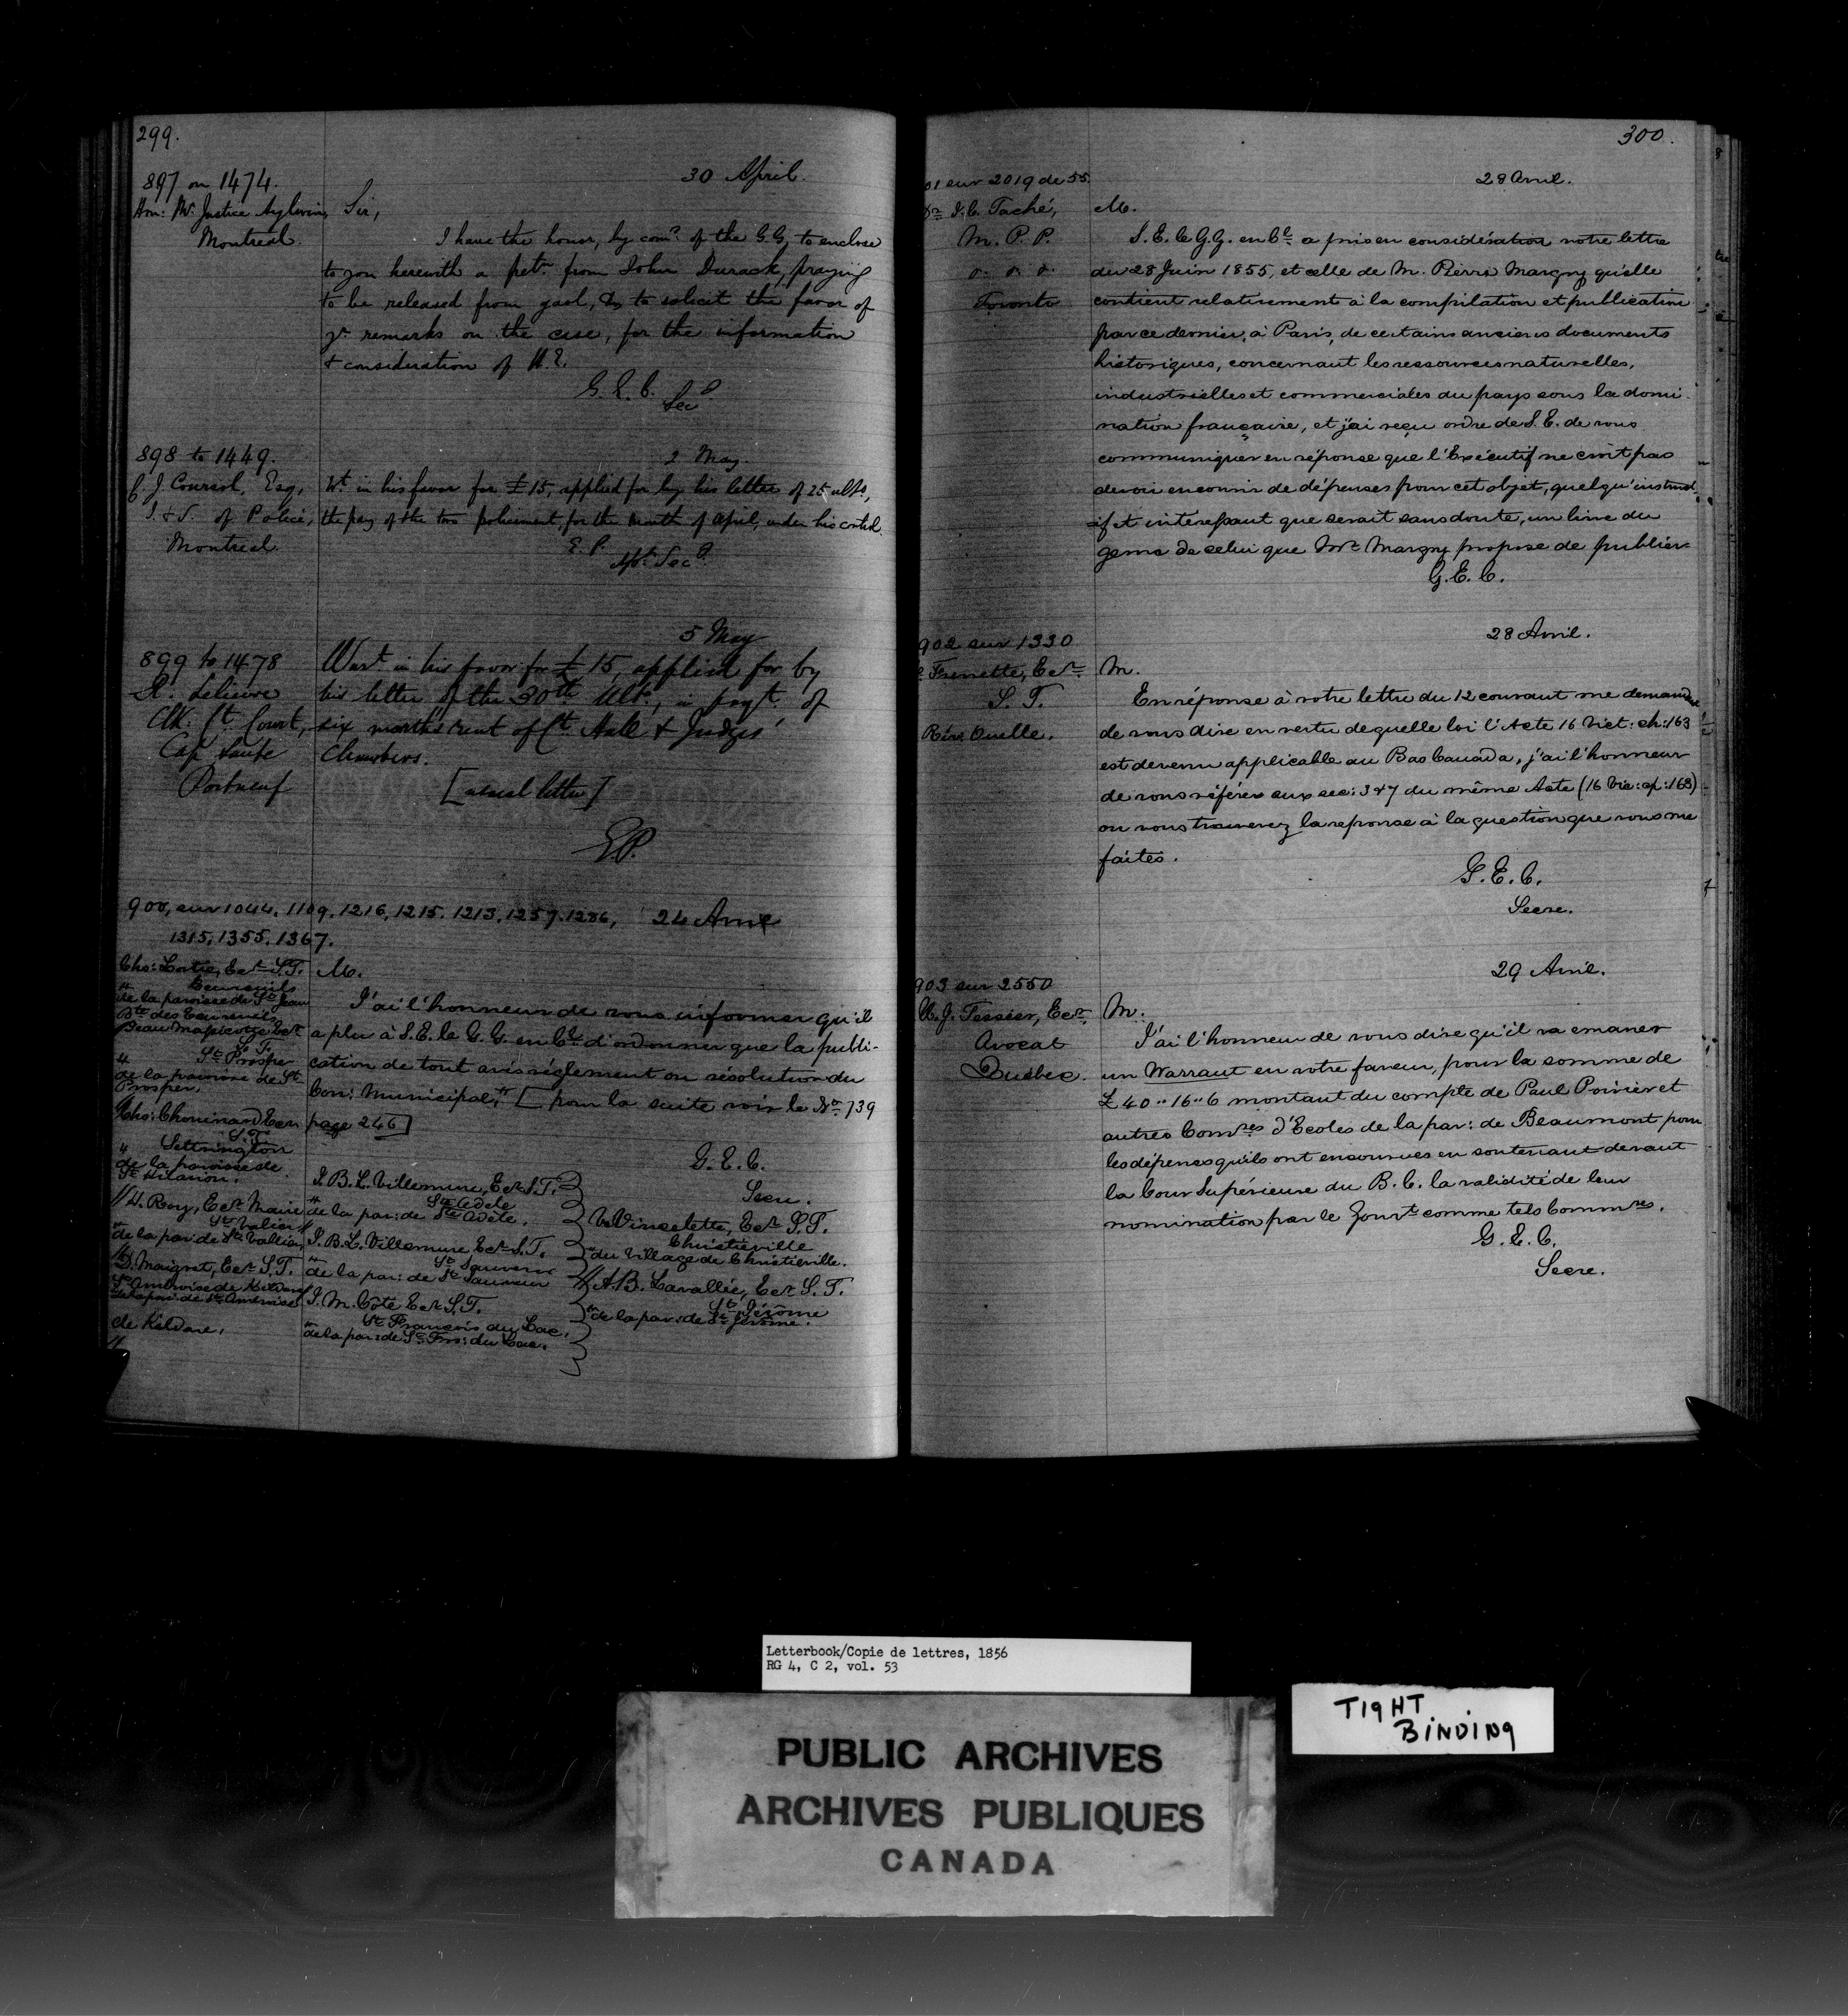 299.
30 April.
897 on 1474.
Hon: Mr. Justice Aylwin,
Montreal.
Sir,
I have the honor, by comd. of the G.G, to enclose
to you herewith a petn. from John Durack, praying
to be released from gaol, & to solicit the favor of
yr. remarks on the case, for the information
& consideration of H.E.
G. E. C.
Secy
2 May.
898 to 1449.
C. J. Coursol, Esq,
I. & S. of Police,
Montreal.
Wt. in his favor for £15, applied for by his letter of 25 ulto,
the pay of the two policement, for the month of april, under his control.
E. P.
Ast. Secy.
5 May
899 to 1478
R. Lelievre
Clk. Ct. Court,
Cap Santé
Portneuf
Warrt. in his favor for £15, applied for by
his letter of the 30th Ulto., in payt. of
six months rent of Ct. Hall & Judges'
Chambers.
[usual letter]
E.P.
900, sur 1044, 1109, 1216, 1215, 1213, 1257, 1286, 24 Avril
1315, 1355, 1367.
Chs: Lortie, Ecr S.T.
Ecureuils
" de la paroisse de St Jean
Bte des Ecureuils
S. T.
St Prosper
" de la paroisse de St
Prosper,
Chs: Chouinard Ecr
S. T.
Settrington
" de la paroisse de
St Hilarion.
" H. Roy, Ecr Maire
St Valier
" de la par: de St Vallier
D. Maigret, Ecr S.T.
St Ambroise de Kildare
de la par: de St Ambroise
de Kildare,
M.
J'ai l'honneur de vous informer qu'il
a plu à S.E. le G.G. en Cl d'ordonner que la publi-
cation de tout avis règlement ou résolution du
Con: Municipal," [pour la suite voir le No 739
page 246]
G. E. C.
Secre.
J. B. L. Villemure, Ecr S.T.
Ste Adèle
" de la par: de Ste Adèle.
J. B. L. Villemure Ecr S.T.
St Sauveur
" de la par: de St Sauveur
J. M. Côté Ecr S.T.
St François du Lac,
" de la par: de St Frs: du Lac.
V. Vincelette, Ecr S.T.
Christieville
" du Village de Christieville.
A. B. Lavallée, Ecr S.T.
St Jérôme
" de la par: de St Jérôme.
300.
28 Avril.
01 sur 2019 de 55.
Dr J. C. Taché,
M. P. P.
Toronto
M.
S. E. le G.G. en Cl a pris en considération votre lettre
du 28 Juin 1855, et celle de M. Pierre Margry qu'elle
contient relativement à la compilation et publication
par ce dernier, à Paris, de certains anciens documents
historiques, concernant les ressources naturelles,
industrielles et commerciales du pays sous la domi-
nation française, et j'ai reçu ordre de S. E. de vous
communiquer en réponse que l'Exécutif ne croit pas
devoir encourir de dépenses pour cet objet, quelqu'instruct-
if et intéressant que serait sans doute, un livre du
genre de celui que Mr Margry propose de publier.
G. E. C.
28 Avril.
902 sur 1330
Frenette, Ecr
S. T.
Rivre Ouelle.
M.
En réponse à votre lettre du 12 courant me demandant
de vous dire en vertu de quelle loi l'Acte 16 Vict: ch: 163
est devenu applicable au Bas Canada, j'ai l'honneur
de vous référer aux sec: 3 & 7 du même Acte (16 Vic: cp: 163)
ou vous trouverez la reponse à la question que vous me
faites.
G. E. C.
Secre.
29 Avril.
903 sur 2550
U. J. Tessier, Ecr,
Avocat
Québec.
M.
J'ai l'honneur de vous dire qu'il va emaner
un Warrant en votre faveur, pour la somme de
£40"16"6 montant du compte de Paul Poirier et
autres Comres d'Ecoles de la par: de Beaumont pour
les dépenses qu'ils ont encourues en soutenant devant
la Cour Supérieure du B. C. la validité de leur
nomination par le Gouvt comme tels Commres.
G. E. C.
Secre.
Letterbook/Copie de lettres, 1856
RG 4, C 2, vol. 53
TIGHT
BINDING
PUBLIC ARCHIVES
ARCHIVES PUBLIQUES
CANADA